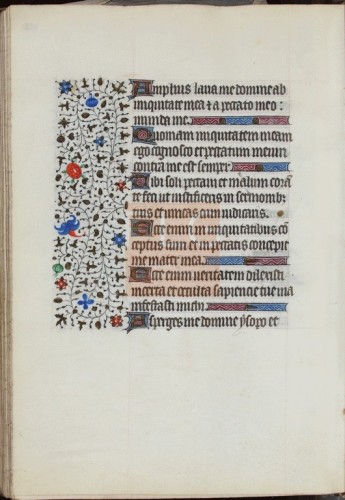 Amplius lava me domine ab
iniquitate mea et a peccato meo :
munda me.
Quoniam iniquitatem meam
ego cognosco et peccatum meum
contra me est semper.
Tibi soli peccavi et malum corā
te feci ut iustificeris in sermonib;
tuis et vincas cum iudicaris.
Ecce enim in iniquitatibus cō
ceptus sum et in peccatis concepit
me mater mea.
Ecce enim veritatem dilexisti
incerta et occulta sapiencie tue ma
nifestasti michi.
Asperges me domine ysopo et